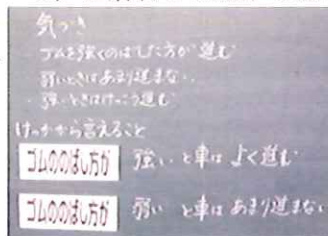 気づき
・ゴムを強くのばした方が進む
・弱いときはあまり進まない
・強いときはけっこう進む
けっかから言えること
ゴムののばし方が 強いと車はよく進む
ゴムののばし方が 弱いと車はあまり進まない